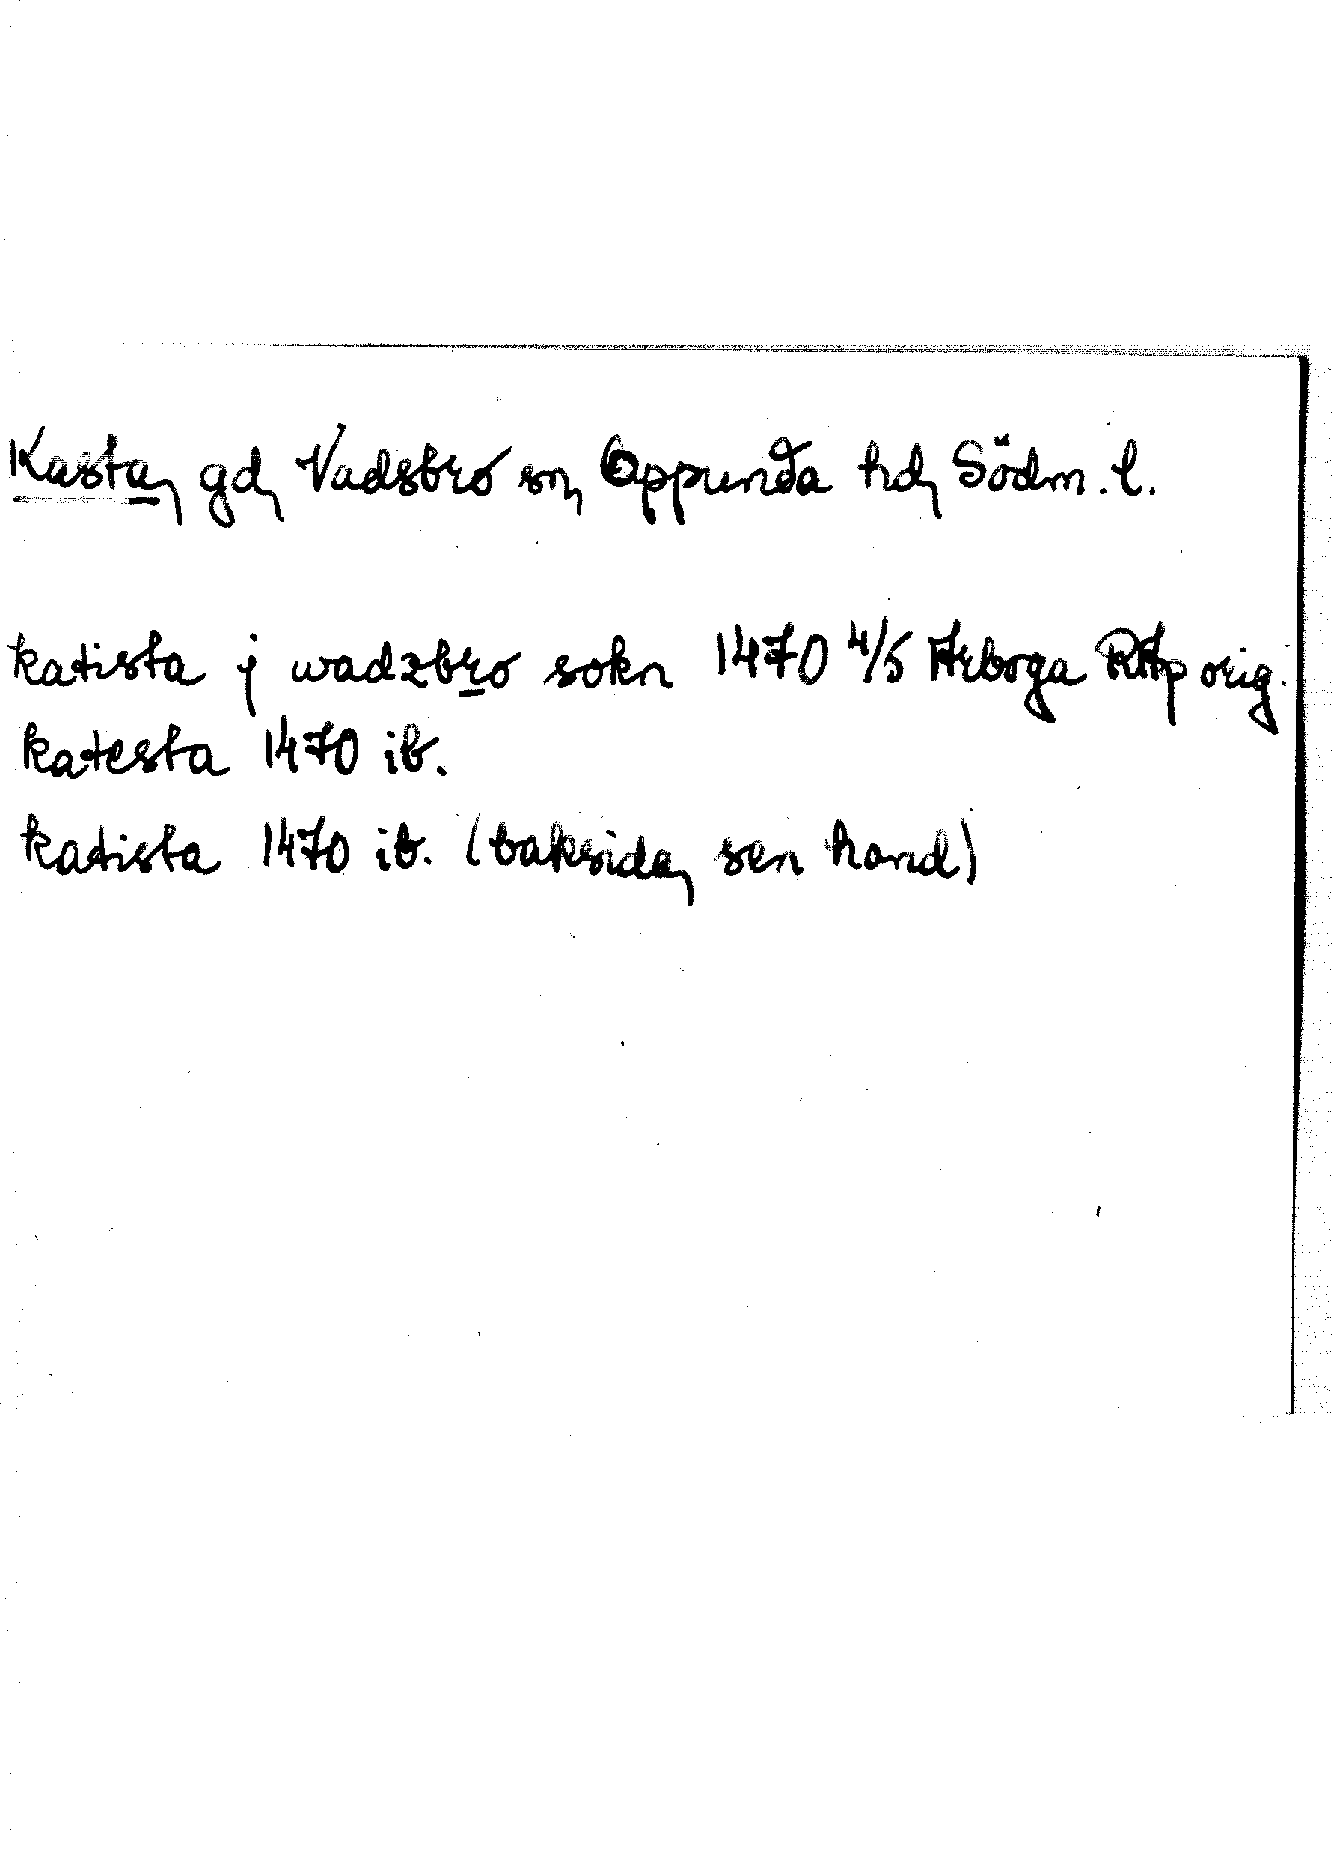 Kasta, gd, Vadsbro sn, Oppunda hd, Södm. l.
katista j wadzbro sokn 1470 4/5 Arboga RAp orig.
katesta 1470 ib.
katista 1470 ib. (baksida, sen hand)